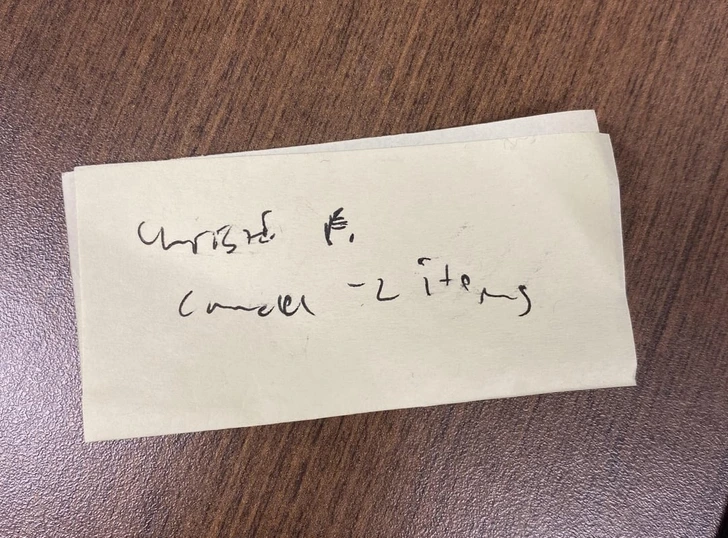 Christi E.
Cancel - 2 items